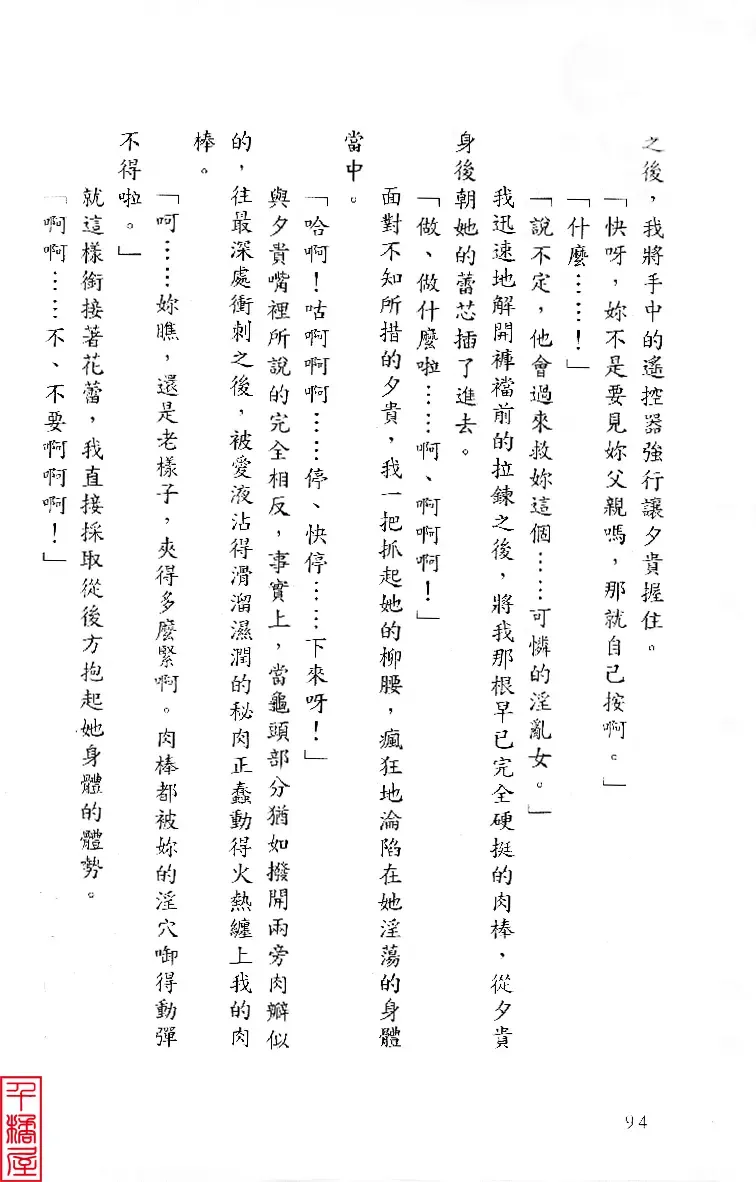 之後，我將手中的遙控器強行讓夕貴握住。
「快呀，妳不是要見妳父親嗎，那就自己按啊。」
「什麼……！」
「說不定，他會過來救妳這個……可憐的淫亂女。」
我迅速地解開褲襠前的拉鍊之後，將我那根早已完全硬挺的肉棒，從夕貴
身後朝她的蕾芯插了進去。
「做、做什麼啦……啊、啊啊啊！」
面對不知所措的夕貴，我一把抓起她的柳腰，瘋狂地淪陷在她淫蕩的身體
當中。
「哈啊！咕啊啊啊……停、快停……下來呀！」
與夕貴嘴裡所說的完全相反，事實上，當龜頭部分猶如撥開兩旁肉瓣似
的，往最深處衝刺之後，被愛液沾得滑溜濕潤的秘肉正蠢動得火熱纏上我的肉
棒。
「呵……妳瞧，還是老樣子，夾得多麼緊啊。肉棒都被妳的淫穴啣得動彈
不得啦。」
就這樣銜接著花蕾，我直接採取從後方抱起她身體的體勢。
「啊啊……不、不要啊啊啊！」
94
千橘屋